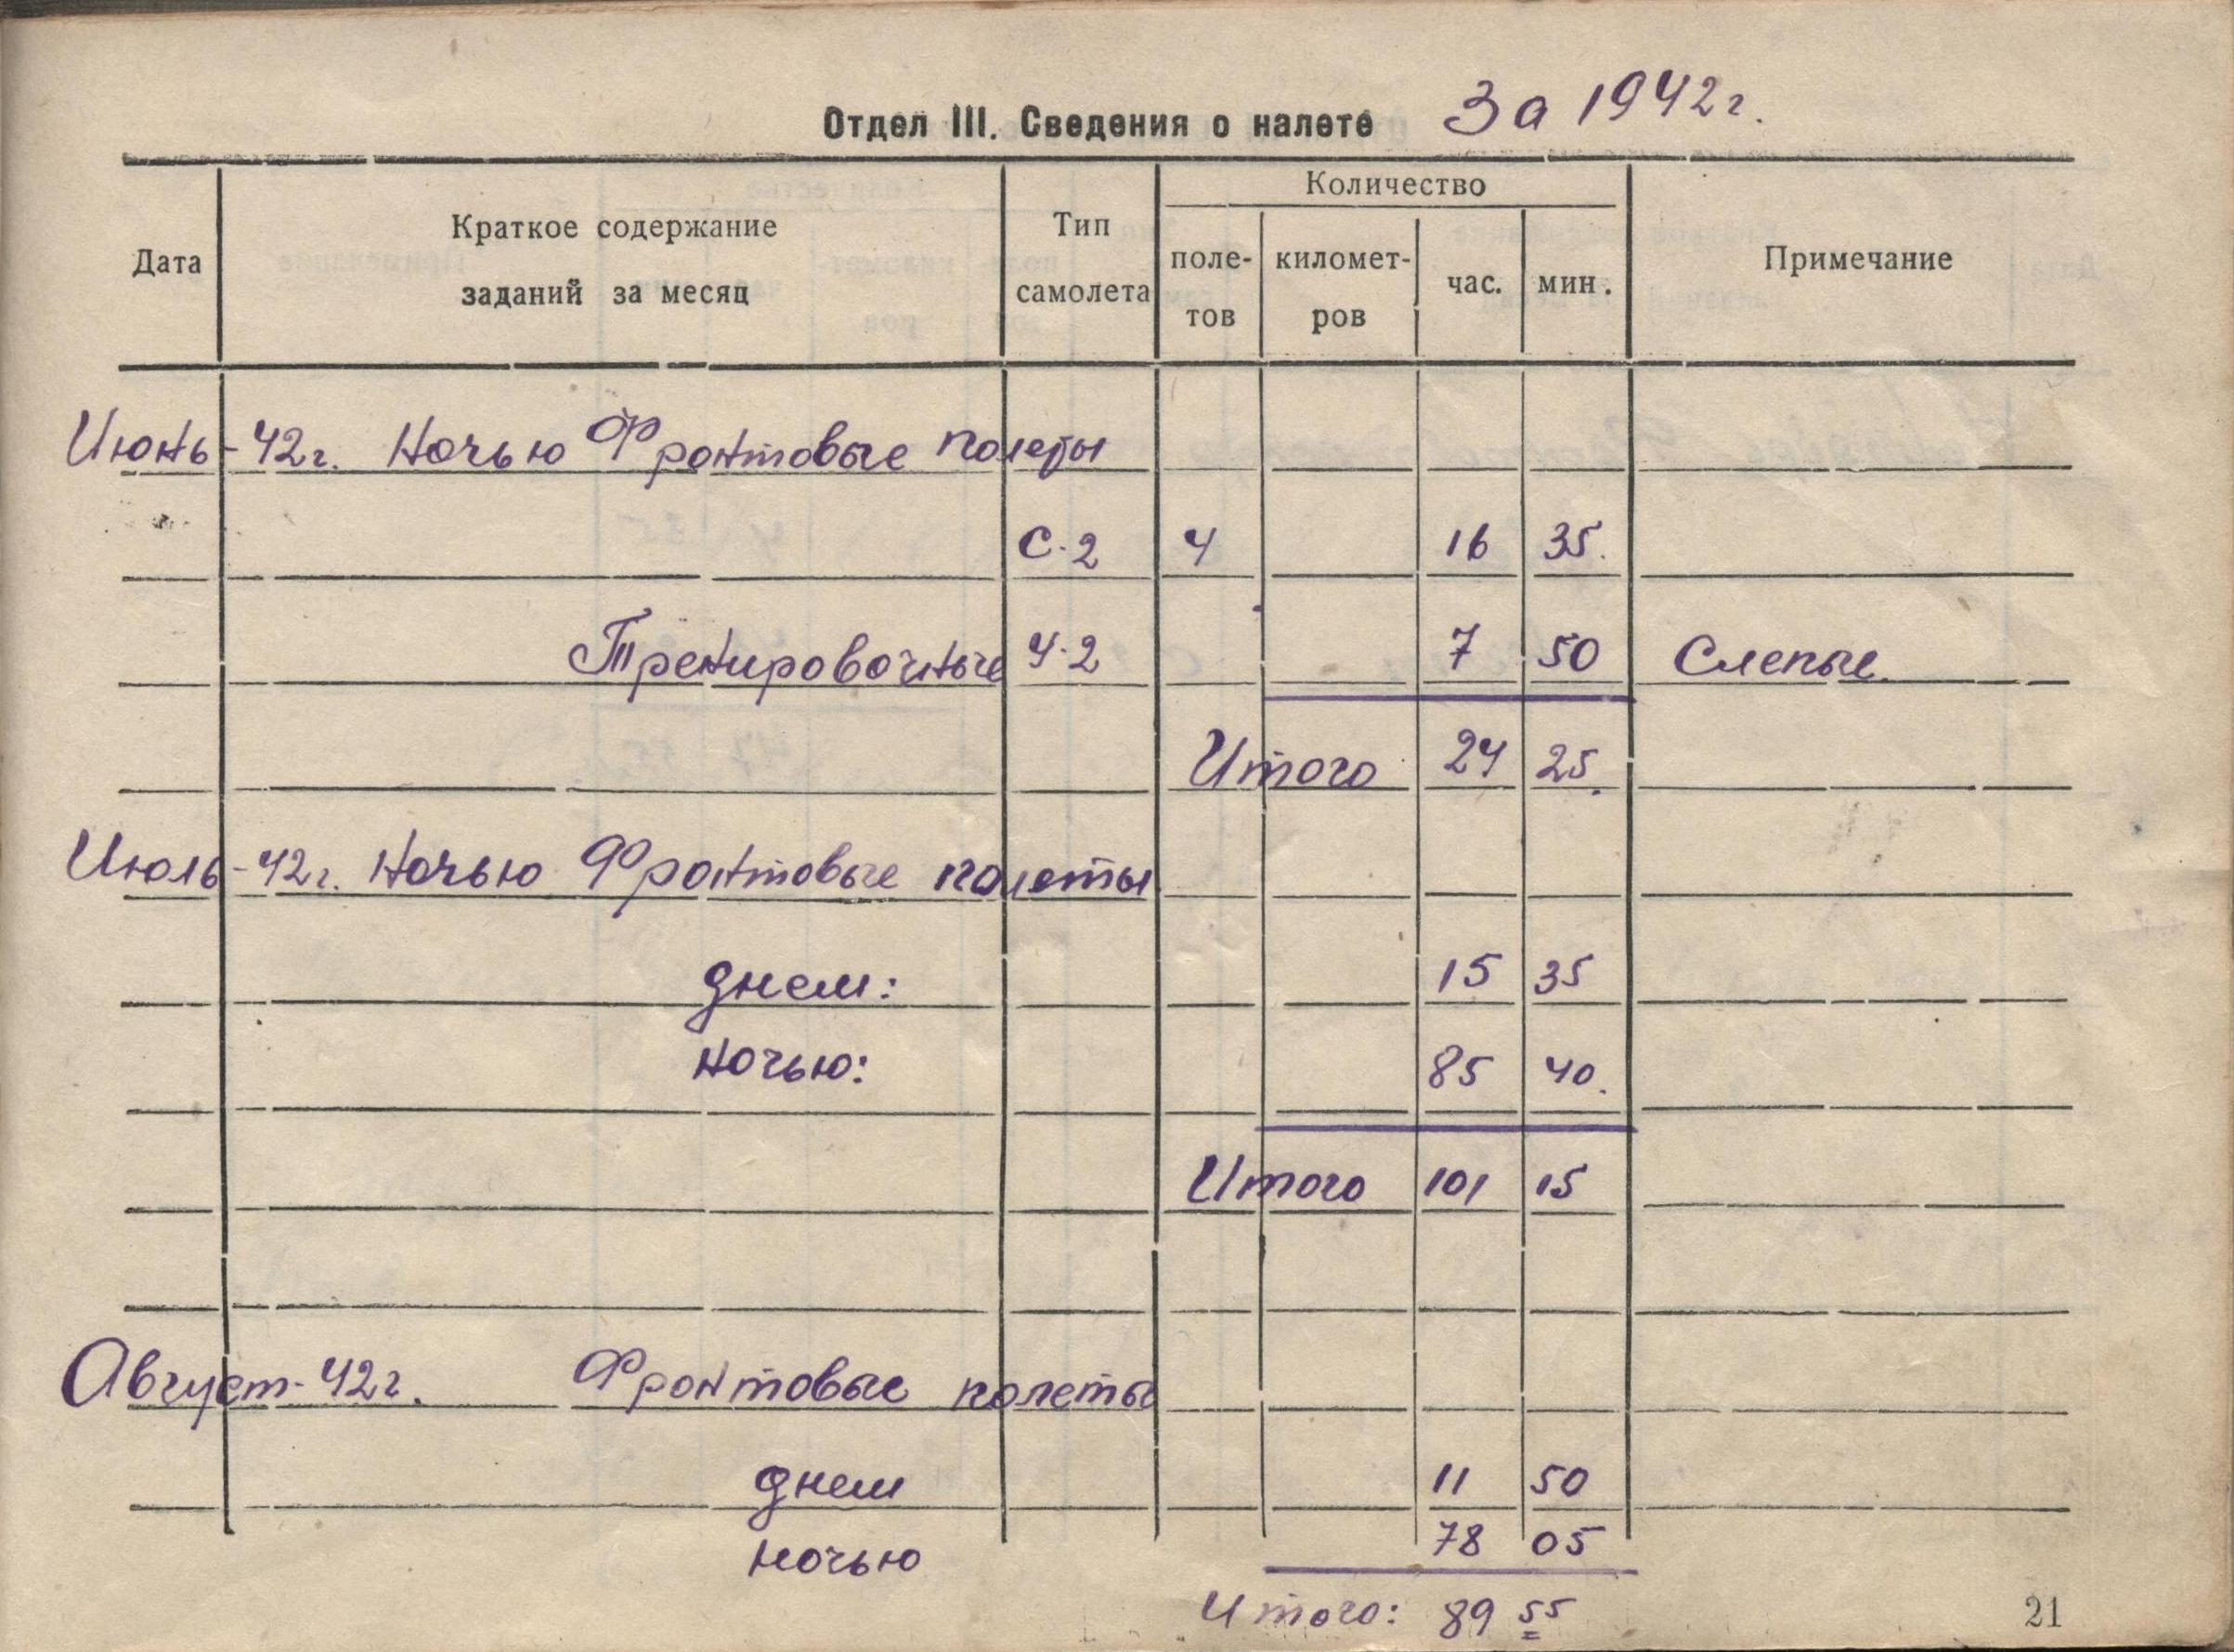 Отдел III. Сведения о налете За 1942г.
Дата
Краткое содержание заданий за месяц
Тип самолета
Количество
поле-тов
километ-ров
час.
мин.
Примечание
Июнь-42г. Ночью Фронтовые полеты
С-2 4 16 35.
Тренировочные У-2 7 50 Слепые.
Итого 24 25.
Июль-42г. Ночью Фронтовые полеты
днем: 15 35
ночью: 85 40.
Итого 101 15
Август-42г. Фронтовые полеты
днем 11 50
ночью 78 05
Итого: 89 55
21